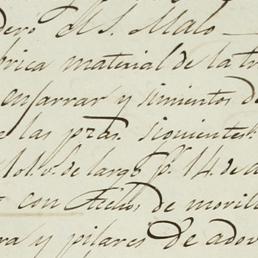 dero M. S. Malo
brica material de la tr
enfarrar y simientos de
e las pzas. siguientes.
de largo p. 14. de a
con de movil
ra y pilares de adov